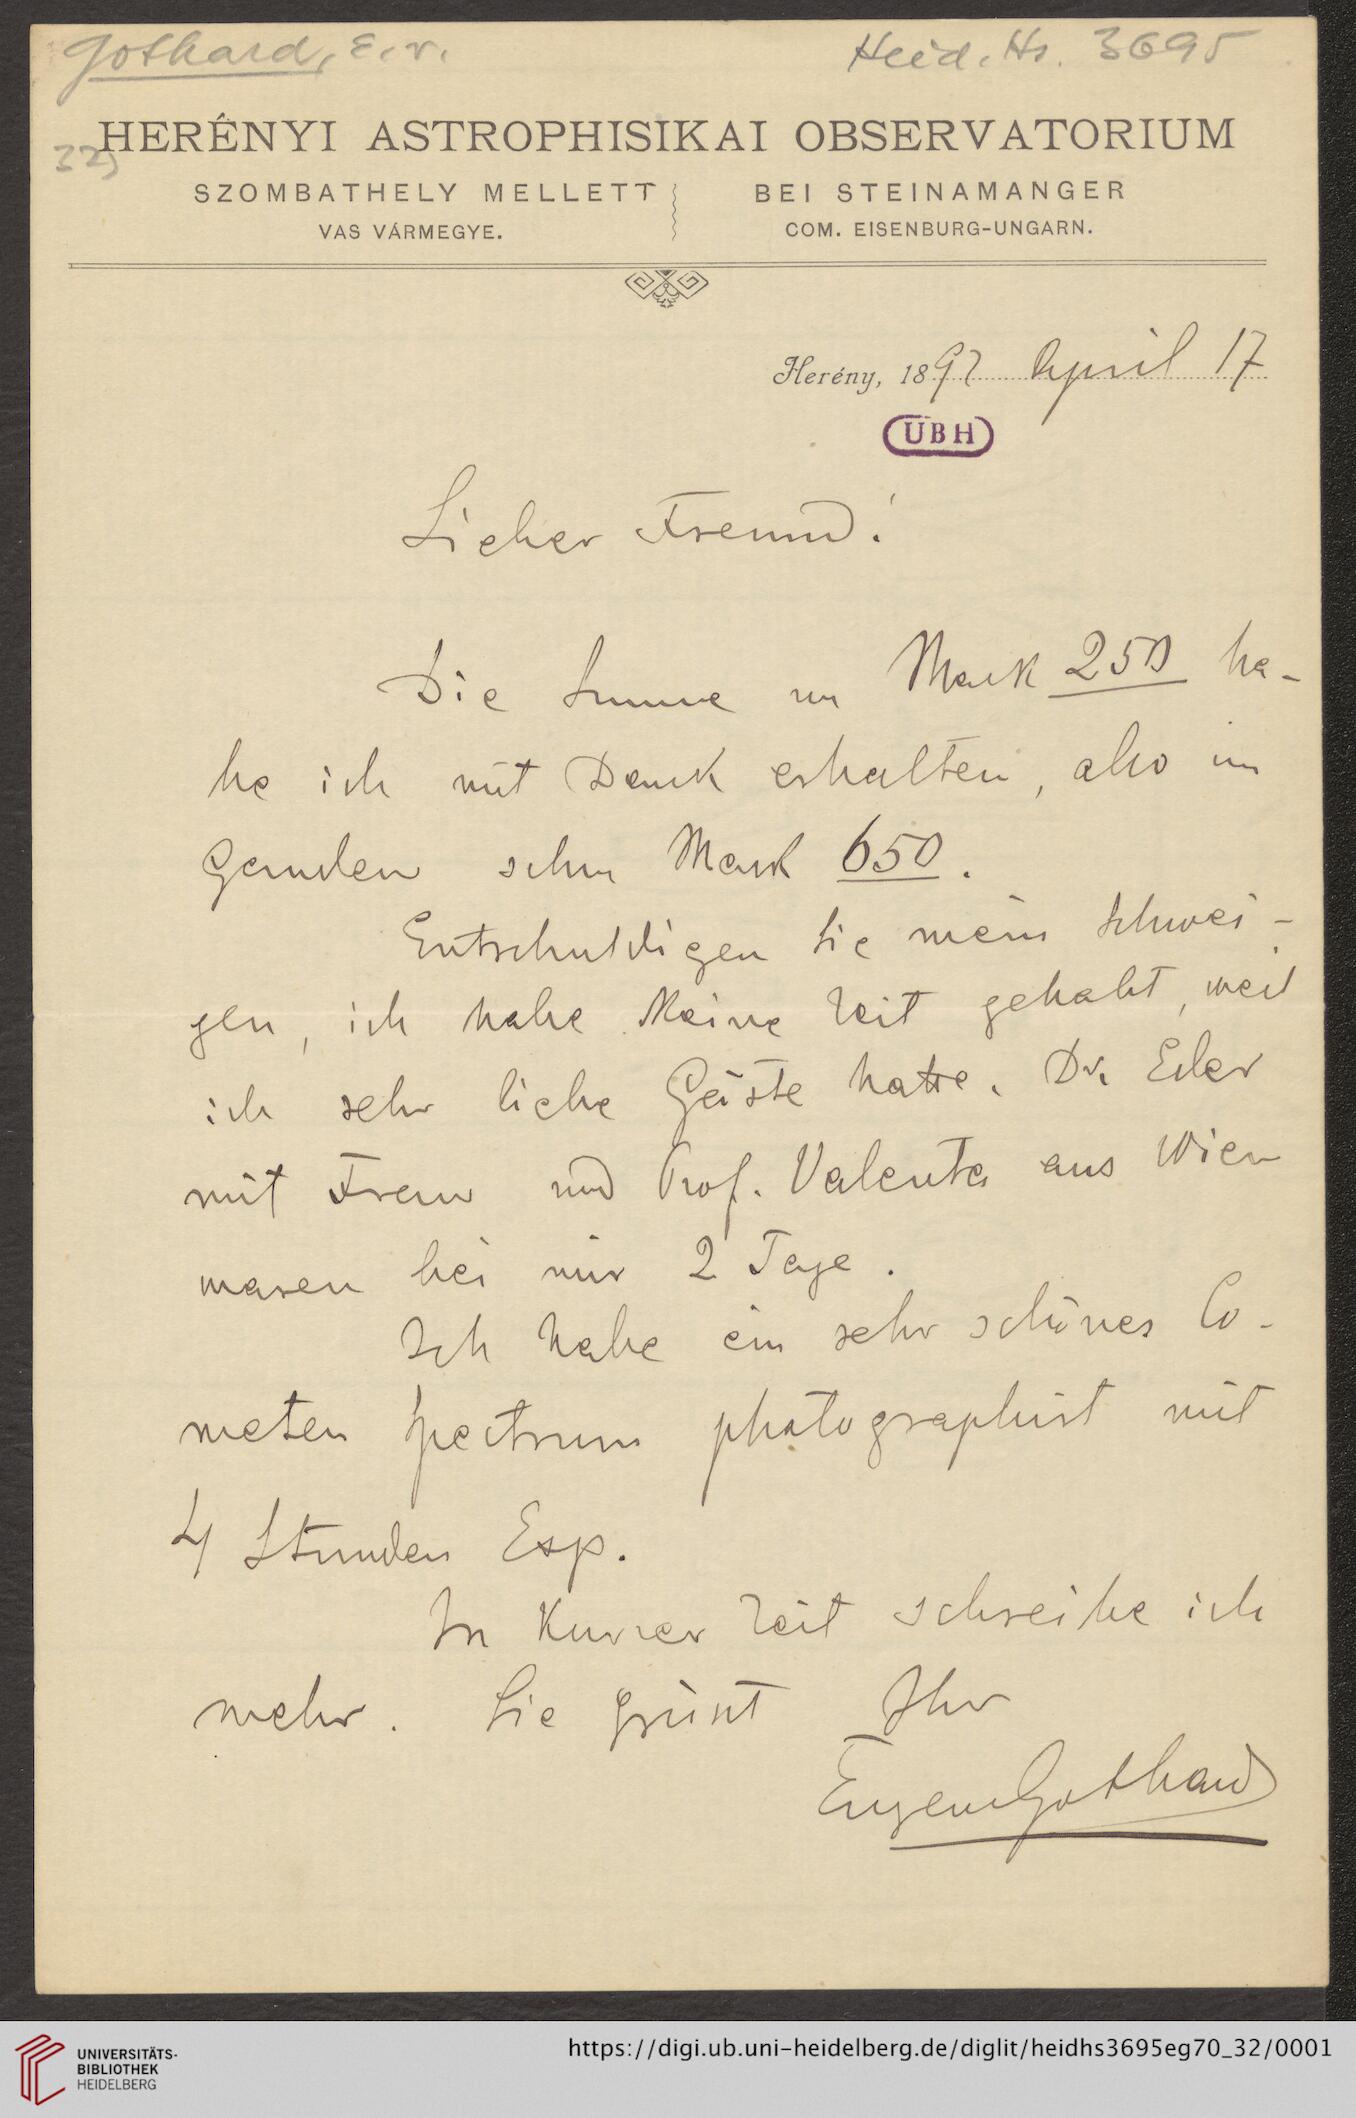 Gothard, E. v.
Heid. Hs. 3695
32)
HERÉNYI ASTROPHISIKAI OBSERVATORIUM
SZOMBATHELY MELLETT
VAS VÁRMEGYE.
BEI STEINAMANGER
COM. EISENBURG-UNGARN.
Herény, 1892 April 17
UBH
Lieber Freund!
Die Summe von Mark 250 ha-
be ich mit Dank erhalten, also im
Ganzen schon Mark 650.
Entschuldigen Sie mein Schwei-
gen, ich habe keine Zeit gehabt, weil
ich sehr liebe Gäste hatte. Dr. Eder
mit Frau und Prof. Valenta aus Wien
waren bei mir 2 Tage.
Ich habe ein sehr schönes Co-
meten Spectrum photographirt mit
4 Stunden Exp.
In kurzer Zeit schreibe ich
mehr. Sie grüsst Ihr
Eugen Gothard
UNIVERSITÄTS-
BIBLIOTHEK
HEIDELBERG
https://digi.ub.uni-heidelberg.de/diglit/heidhs3695eg70_32/0001